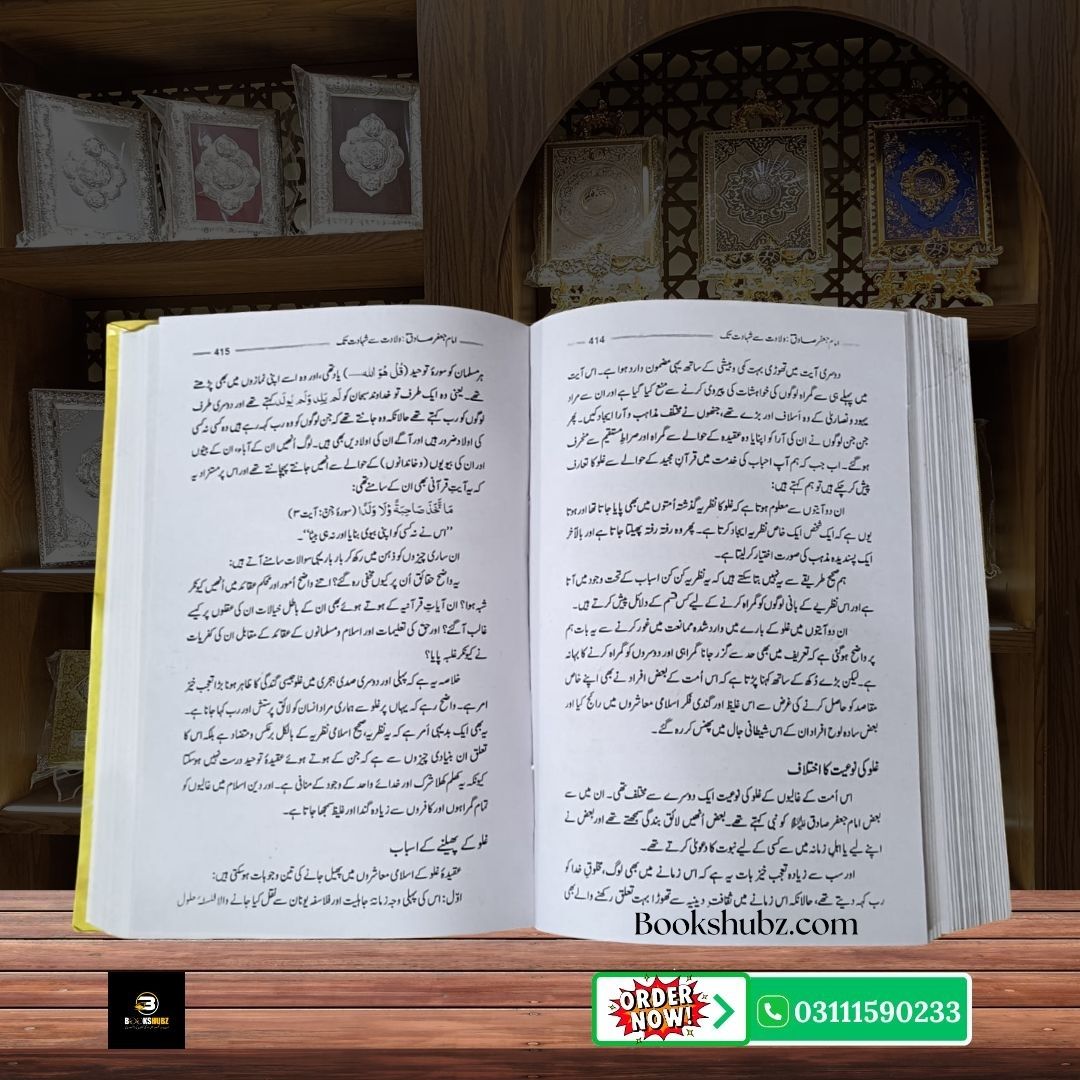 امام جعفر صادقؑ: ولادت سے شہادت تک 414
دوسری آیت میں تھوڑی بہت کمی وبیشی کے ساتھ یہی مضمون دارد ہوا ہے۔ اس آیت
میں پہلے ہی سے گمراہ لوگوں کی خواہشات کی پیروی کرنے سے منع کیا گیا ہے اور ان سے مراد
یہود و نصاریٰ کے وہ اسلاف اور بڑے تھے، جنھوں نے مختلف مذاہب و آرا ایجاد کیں۔ پھر
جن جن لوگوں نے ان کی آرا کو اپنایا وہ عقیدہ کے حوالے سے گمراہ اور صراطِ مستقیم سے منحرف
ہوگئے۔ اب جب کہ ہم آپ احباب کی خدمت میں قرآنِ مجید کے حوالے سے غلو کا تعارف
پیش کرچکے ہیں تو ہم کہتے ہیں:
ان دو آیتوں سے معلوم ہوتا ہے کہ غلو کا نظریہ گذشتہ اُمتوں میں بھی پایا جاتا تھا اور ہوتا
یوں ہے کہ ایک شخص ایک خاص نظریہ ایجاد کرتا ہے۔ پھر وہ رفتہ رفتہ پھیلتا جاتا ہے اور بالآخر
ایک پسندیدہ مذہب کی صورت اختیار کرلیتا ہے۔
ہم صحیح طریقے سے یہ نہیں بتاسکتے ہیں کہ یہ نظریہ کن کن اسباب کے تحت وجود میں آتا
ہے اور اس نظریے کے بانی لوگوں کو گمراہ کرنے کے لیے کس قسم کے دلائل پیش کرتے ہیں۔
ان دو آیتوں میں غلو کے بارے میں وارد شدہ ممانعت میں غور کرنے سے یہ بات ہم
پر واضح ہوگئی ہے کہ تعریف میں بھی حد سے گزر جانا گمراہی اور دوسروں کو گمراہ کرنے کا بہانہ
ہے۔ لیکن بڑے دُکھ کے ساتھ کہنا پڑتا ہے کہ اس اُمت کے بعض افراد نے بھی اپنے خاص
مقاصد کو حاصل کرنے کی غرض سے اس غلیظ اور گندی فکر اسلامی معاشروں میں رائج کیا اور
بعض سادہ لوح افراد ان کے اس شیطانی جال میں پھنس کر رہ گئے۔
غلو کی نوعیت کا اختلاف
اس اُمت کے غالیوں کے غلو کی نوعیت ایک دوسرے سے مختلف تھی۔ ان میں سے
بعض امام جعفر صادق کو نبی کہتے تھے۔ بعض اُنھیں لائق بندگی سمجھتے تھے اور بعض نے
اپنے لیے یا اہلِ زمانہ میں سے کسی کے لیے نبوت کا دعویٰ کرتے تھے۔
اور سب سے زیادہ تعجب خیز بات یہ ہے کہ اس زمانے میں بھی لوگ، مخلوقِ خدا کو
رب کہہ دیتے تھے، حالانکہ اس زمانے میں ثقافتِ دینیہ سے تھوڑا بہت تعلق رکھنے والے بھی
امام جعفر صادقؑ: ولادت سے شہادت تک 415
ہر مسلمان کو سورۂ توحید (قُلْ هُوَ اللهُ---) یاد تھی، اور وہ اسے اپنی نمازوں میں بھی پڑھتے
تھے۔ یعنی وہ ایک طرف تو خداوند سبحان کو لَمْ يَلِدْ وَلَمْ يُولَدْ کہتے تھے اور دوسری طرف
لوگوں کو رب کہتے تھے حالانکہ وہ جانتے تھے کہ جن لوگوں کو وہ رب کہہ رہے ہیں وہ کسی نہ کسی
کی اولاد ضرور ہیں اور آگے ان کی اولادیں بھی ہیں۔ لوگ اُنھیں ان کے آباء، ان کے بیٹوں
اور ان کی بیویوں (و خاندانوں) کے حوالے سے اُنھیں جانتے پہچانتے تھے اور اس پر مستزاد یہ
کہ یہ آیتِ قرآنی بھی ان کے سامنے تھی:
مَا تَّخَذَ صَاحِبَةً وَّلَا وَلَدًا (سورۂ جن: آیت ۳)
”اس نے نہ کسی کو اپنی بیوی بنایا اور نہ ہی بیٹا“۔
ان ساری چیزوں کو ذہن میں رکھ کر بار بار یہی سوالات سامنے آتے ہیں:
یہ واضح حقائق اُن پر کیوں مخفی رہ گئے؟ اتنے واضح اُمور اور محکم عقائد میں اُنھیں کیونکر
شبہ ہوا؟ ان آیاتِ قرآنیہ کے ہوتے ہوئے بھی ان کے باطل خیالات ان کی عقلوں پر کیسے
غالب آگئے؟ اور حق کی تعلیمات اور اسلام و مسلمانوں کے عقائد کے مقابل ان کی کفریات
نے کیونکر غلبہ پایا؟
خلاصہ یہ ہے کہ پہلی اور دوسری صدی ہجری میں غلو جیسی گندگی کا ظاہر ہونا بڑا تعجب خیز
امر ہے۔ واضح رہے کہ یہاں پر غلو سے ہماری مراد انسان کو لائق پرستش اور رب کہا جانا ہے۔
یہ بھی ایک بدیہی اَمر ہے کہ یہ نظریہ صحیح اسلامی نظریہ کے بالکل برعکس و متضاد ہے بلکہ اس کا
تعلق ان بنیادی چیزوں سے ہے کہ جن کے ہوتے ہوئے عقیدۂ توحید درست نہیں ہوسکتا
کیونکہ یہ کھلم کھلا شرک اور خدائے واحد کے وجود کے منافی ہے۔ اور دین اسلام میں غالیوں کو
تمام گمراہوں اور کافروں سے زیادہ گندا اور غلیظ سمجھا جاتا ہے۔
غلو کے پھیلنے کے اسباب
عقیدۂ غلو کے اسلامی معاشروں میں پھیل جانے کی تین وجوہات ہوسکتی ہیں:
اوّل: اس کی پہلی وجہ زمانۂ جاہلیت اور فلاسفہ یونان سے نقل کیا جانے والا فلسفۂ حلول
Bookshubz.com
BOOKSHUBZ
ORDER NOW!
03111590233